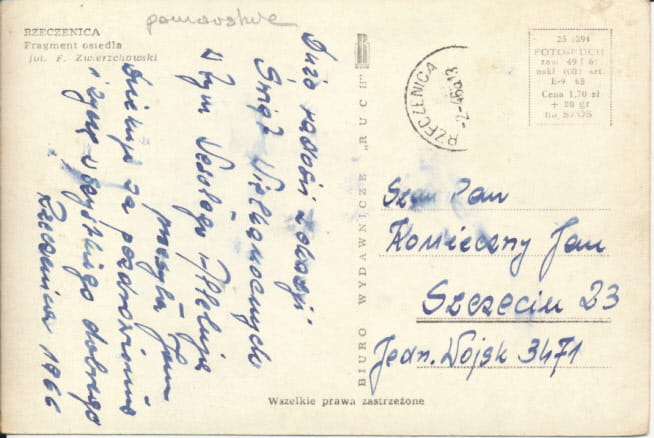 pomorskie
RZECZENICA
Fragment osiedla
fot. F. Zwierzchowski
Dużo radości z okazji
Świąt Wielkanocnych
w tym Wesołego Alleluja
przesyła
Dziękuję za pozdrowienia
i życzę wszystkiego dobrego
Rzeczenica 1966
BIURO WYDAWNICZE „RUCH"
RZECZENICA
FOTO-RUCH
zam 49
nakł (60) szt.
E-9 65
Cena 1,70 zł
+ 20 gr
na SFOS
Szan Pan
Konieczny Jan
Szczecin 23
Jedn. Wojsk 3471
Wszelkie prawa zastrzeżone